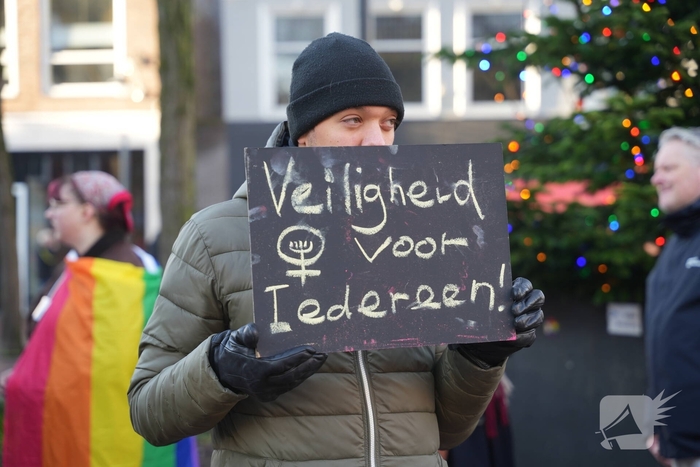 Veiligheid
voor
Iedereen!